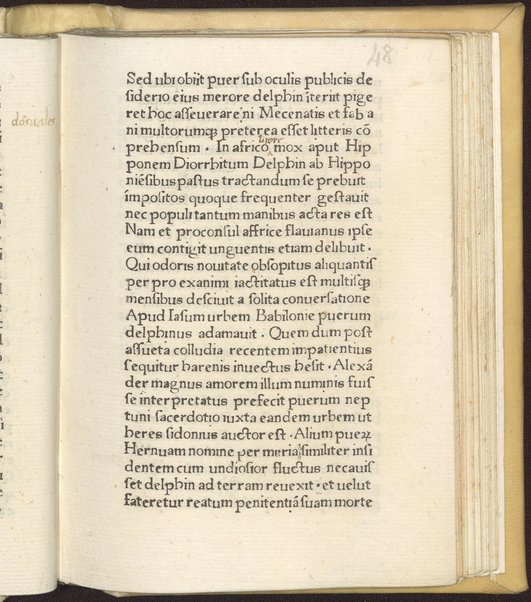 48
Sed ubi obiit puer sub oculis publicis de
siderio eius merore delphin īteriit pige
ret hoc asseverare ni Mecenatis et fab a
ni multorumqꝫ preterea esset litteris cō
prehensum . In africo mox aput Hip
litore
ponem Diorrhitum Delphin ab Hippo
niēsibus pastus tractandum se prebuit
impositos quoque frequenter gestauit
nec populi tantum manibus acta res est
Nam et proconsul affrice flauianus ipse
eum contigit unguentis etiam delibuit .
Qui odoris nouitate obsopitus aliquantis
per pro exanimi iactitatus est multisqꝫ
mensibus desciuit a solita conuersatione
Apud Iasum urbem Babilonie puerum
delphinus adamauit . Quem dum post
assueta colludia recentem impatientius
sequitur harenis inuectus hesit . Alexā
der magnus amorem illum numinis fuis
se interpretatus prefecit puerum nep
tuni sacerdotio iuxta eandem urbem ut
heres sidonius auctor est . Alium pueꝝ
Hernuam nomine per maria similiter insi
dentem cum undiosior fluctus necauis
set delphin ad terram reuexit . et uelut
fateretur reatum penitentiā suam morte